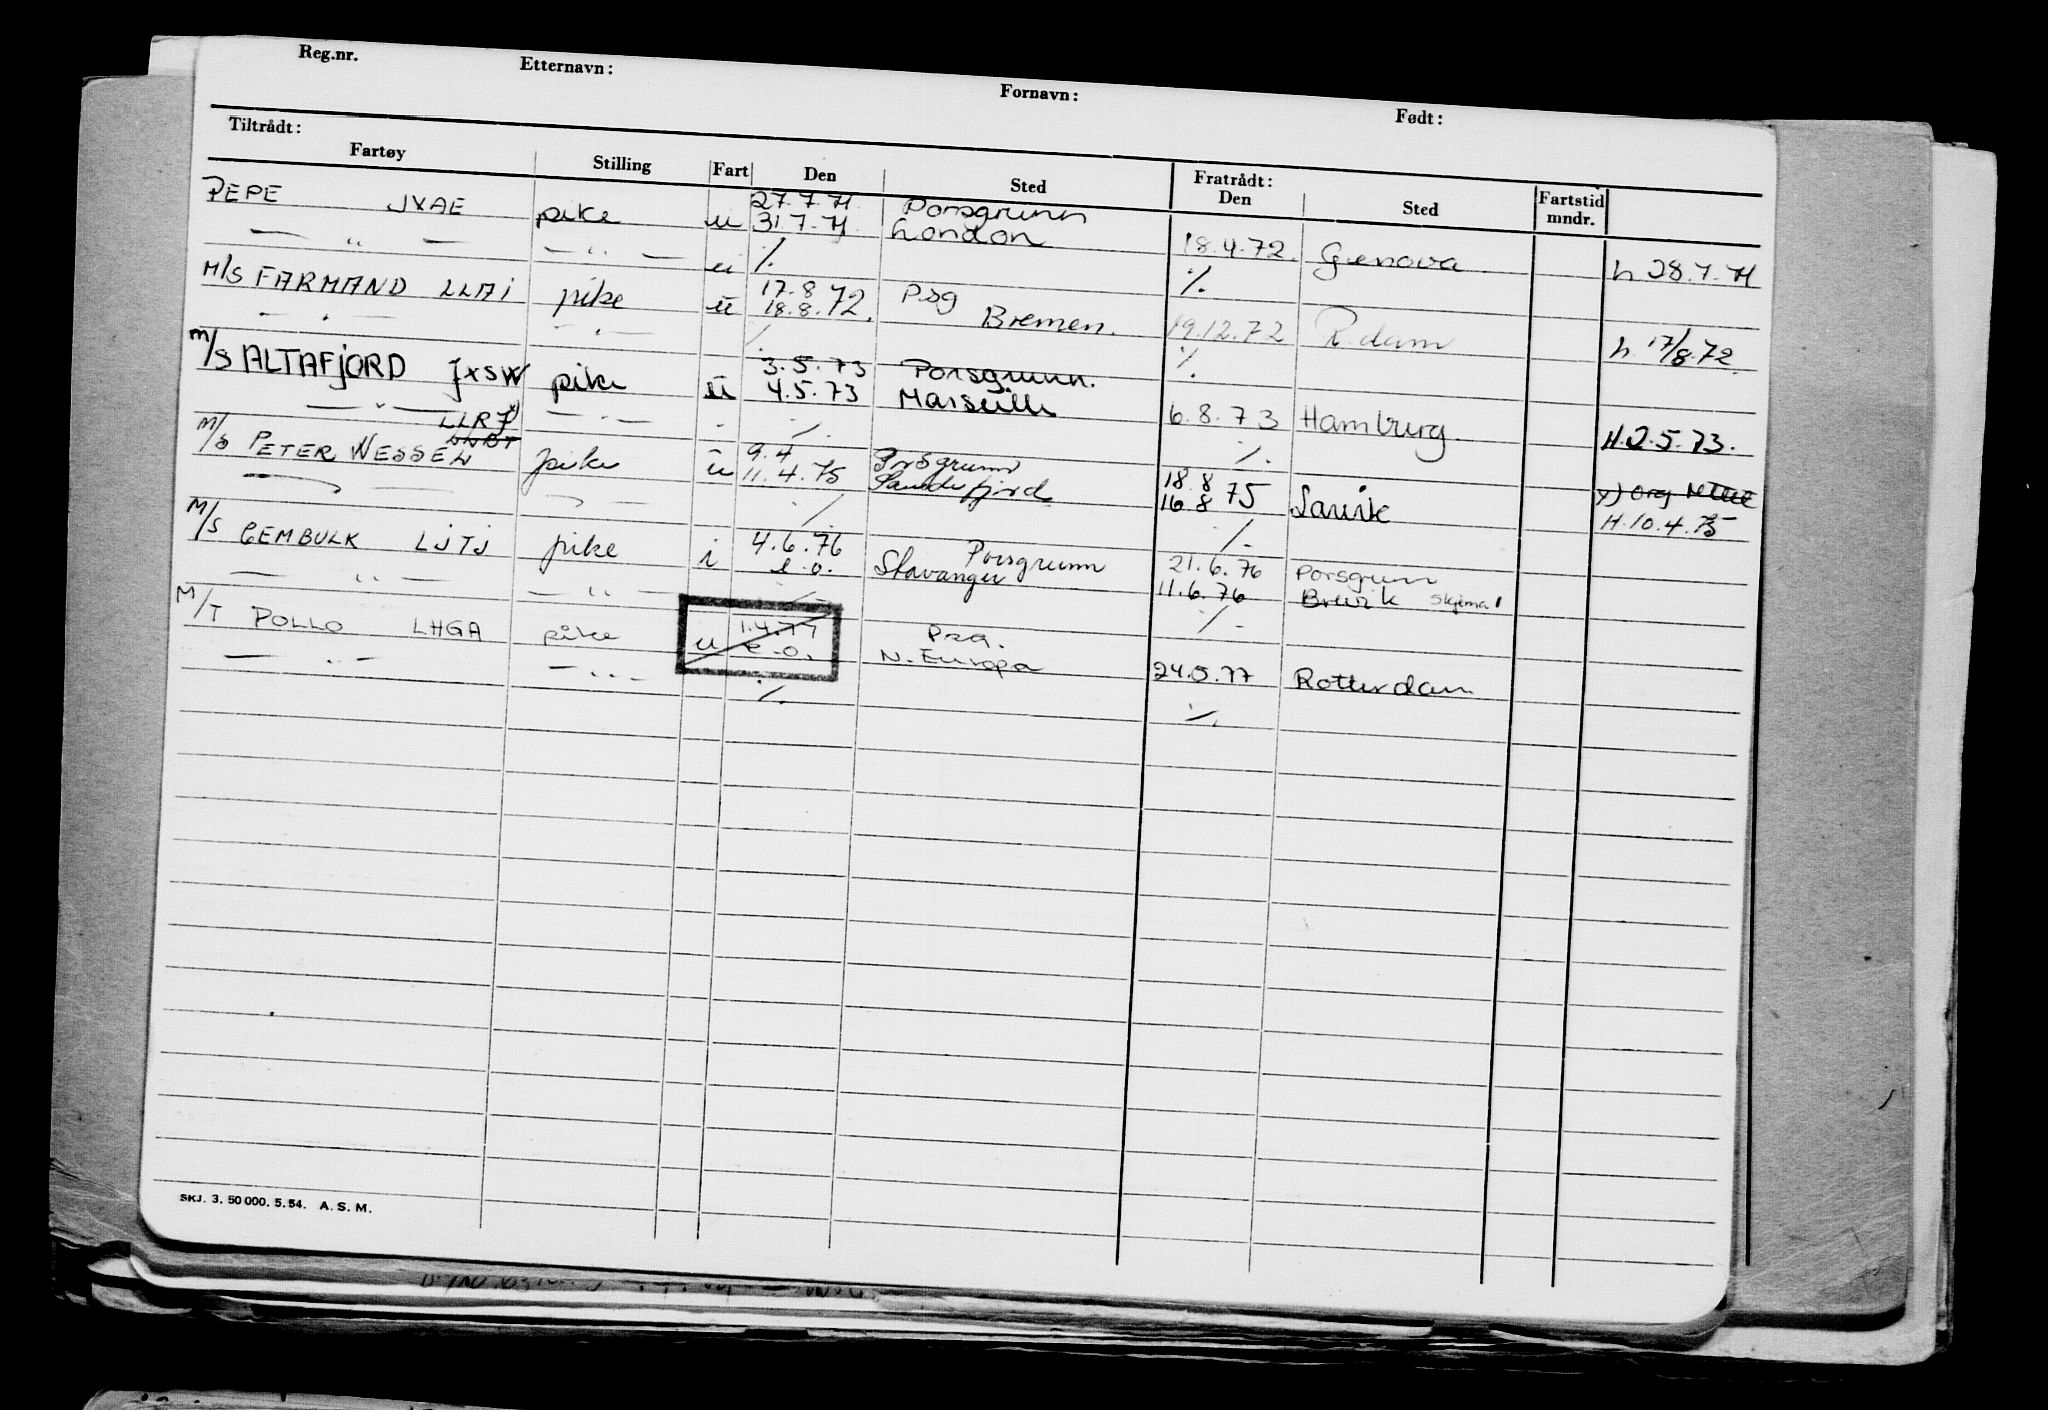 Reg.nr. Etternavn: Fornavn: Født:
Tiltrådt: Fratrådt:
Fartøy Stilling Fart Den Sted Den Sted Fartstid mndr.
27.7.71 Porsgrunn
PEPE JXAE pike u 31.7.71 London 18.4.72. Genova h 28.7.71
— " — — " — u ./. ./.
17.8 Psg
M/S FARMAND LLAI pike u 18.8.72. Bremen. 19.12.72 R.dam h. 17/8.72
— " — — " — ./. ./.
3.5.73 Porsgrunn.
M/S ALTAFJORD JXSW pike u 4.5.73 Marseille 6.8.73 Hamburg. H.2.5.73.
— " — — " — ./. ./.
LLRJ x)
9.4 Porsgrunn 18.8
M/S PETER WESSEL pike u 11.4.75 Sandefjord 16.8 75 Larvik x) Org
H.10.4.75
— — ./. ./.
4.6.76 Porsgrunn 21.6.76 Porsgrunn
M/S GEMBULK LJTJ pike i s.o. Stavanger 11.6.76 Brevik skjema
— " — — " — ./. ./.
1.4.77 Psg.
M/T POLLO LHGA pike u e.o. N. Europa 24.5.77 Rotterdam
— " — — " — ./. ./.
SKJ. 3. 50 000. 5. 54. A. S. M.